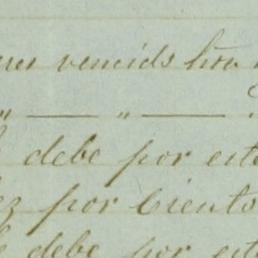 vencids hoy
" ——— " ——— "
debe por este
ez por Ciento
debe por este